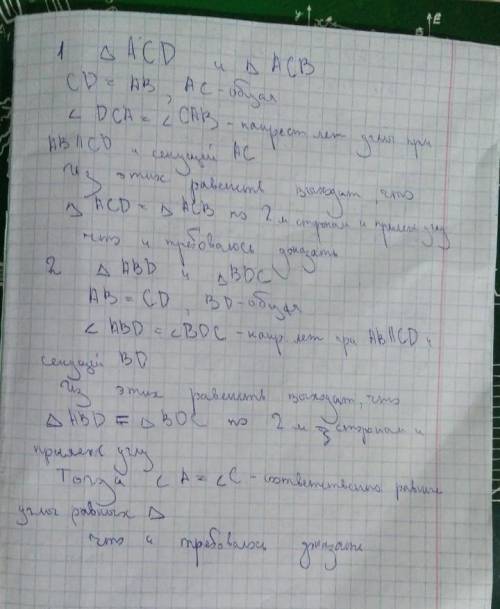 1 △ ACD и △ ACB
CD = AB, AC - общая
∠ DCA = ∠CAB - накрест леж углы при
AB||CD и секущей AC
Из этих равенств выходит, что
△ ACD = △ ACB по 2м сторонам и прилеж углу
что и требовалось доказать
2 △ ABD и △BDC
AB = CD, BD - общая
∠ ABD = ∠BDC - накр леж при AB||CD и
секущей BD
Из этих равенств выходит, что
△ ABD = △ BDC по 2м сторонам и
прилеж углу
Тогда ∠A = ∠C - соответственно равные
углы равных △
что и требовалось доказать